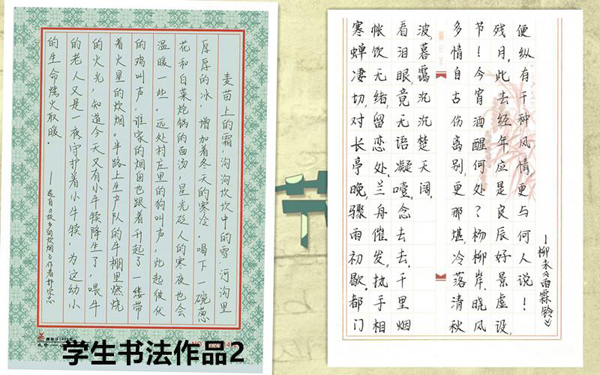 麦苗上的霜,沟沟坎坎中的雪,河沟里
厚厚的冰,增加着冬天的寒冷。喝下一碗葱
花和白菜炝锅的面汤,星光砭人的寒夜也会
温暖一些。远处村庄里的狗叫声,此起彼伏
的鸡叫声,谁家的烟囱也跟着升起了一缕带
着火星的炊烟。半路上生产队的牛棚里燃烧
的火光,知道今天又有小牛犊降生了,喂牛
的老人又是一夜守护着小牛犊,为这幼小
的生命燃火取暖。
学生书法作品2
寒蝉凄切对长亭晚,骤雨初歇都门
帐饮无绪,留恋处,兰舟催发,执手相
看泪眼竟无语凝噎,念去去,千里烟
波暮霭沉沉楚天阔,
多情自古伤离别更那堪冷落清秋
节!今宵酒醒何处?杨柳岸,晓风
残月,此去经年应是良辰好景虚设,
便纵有千种风情更与何人说!
—柳永《雨霖铃》